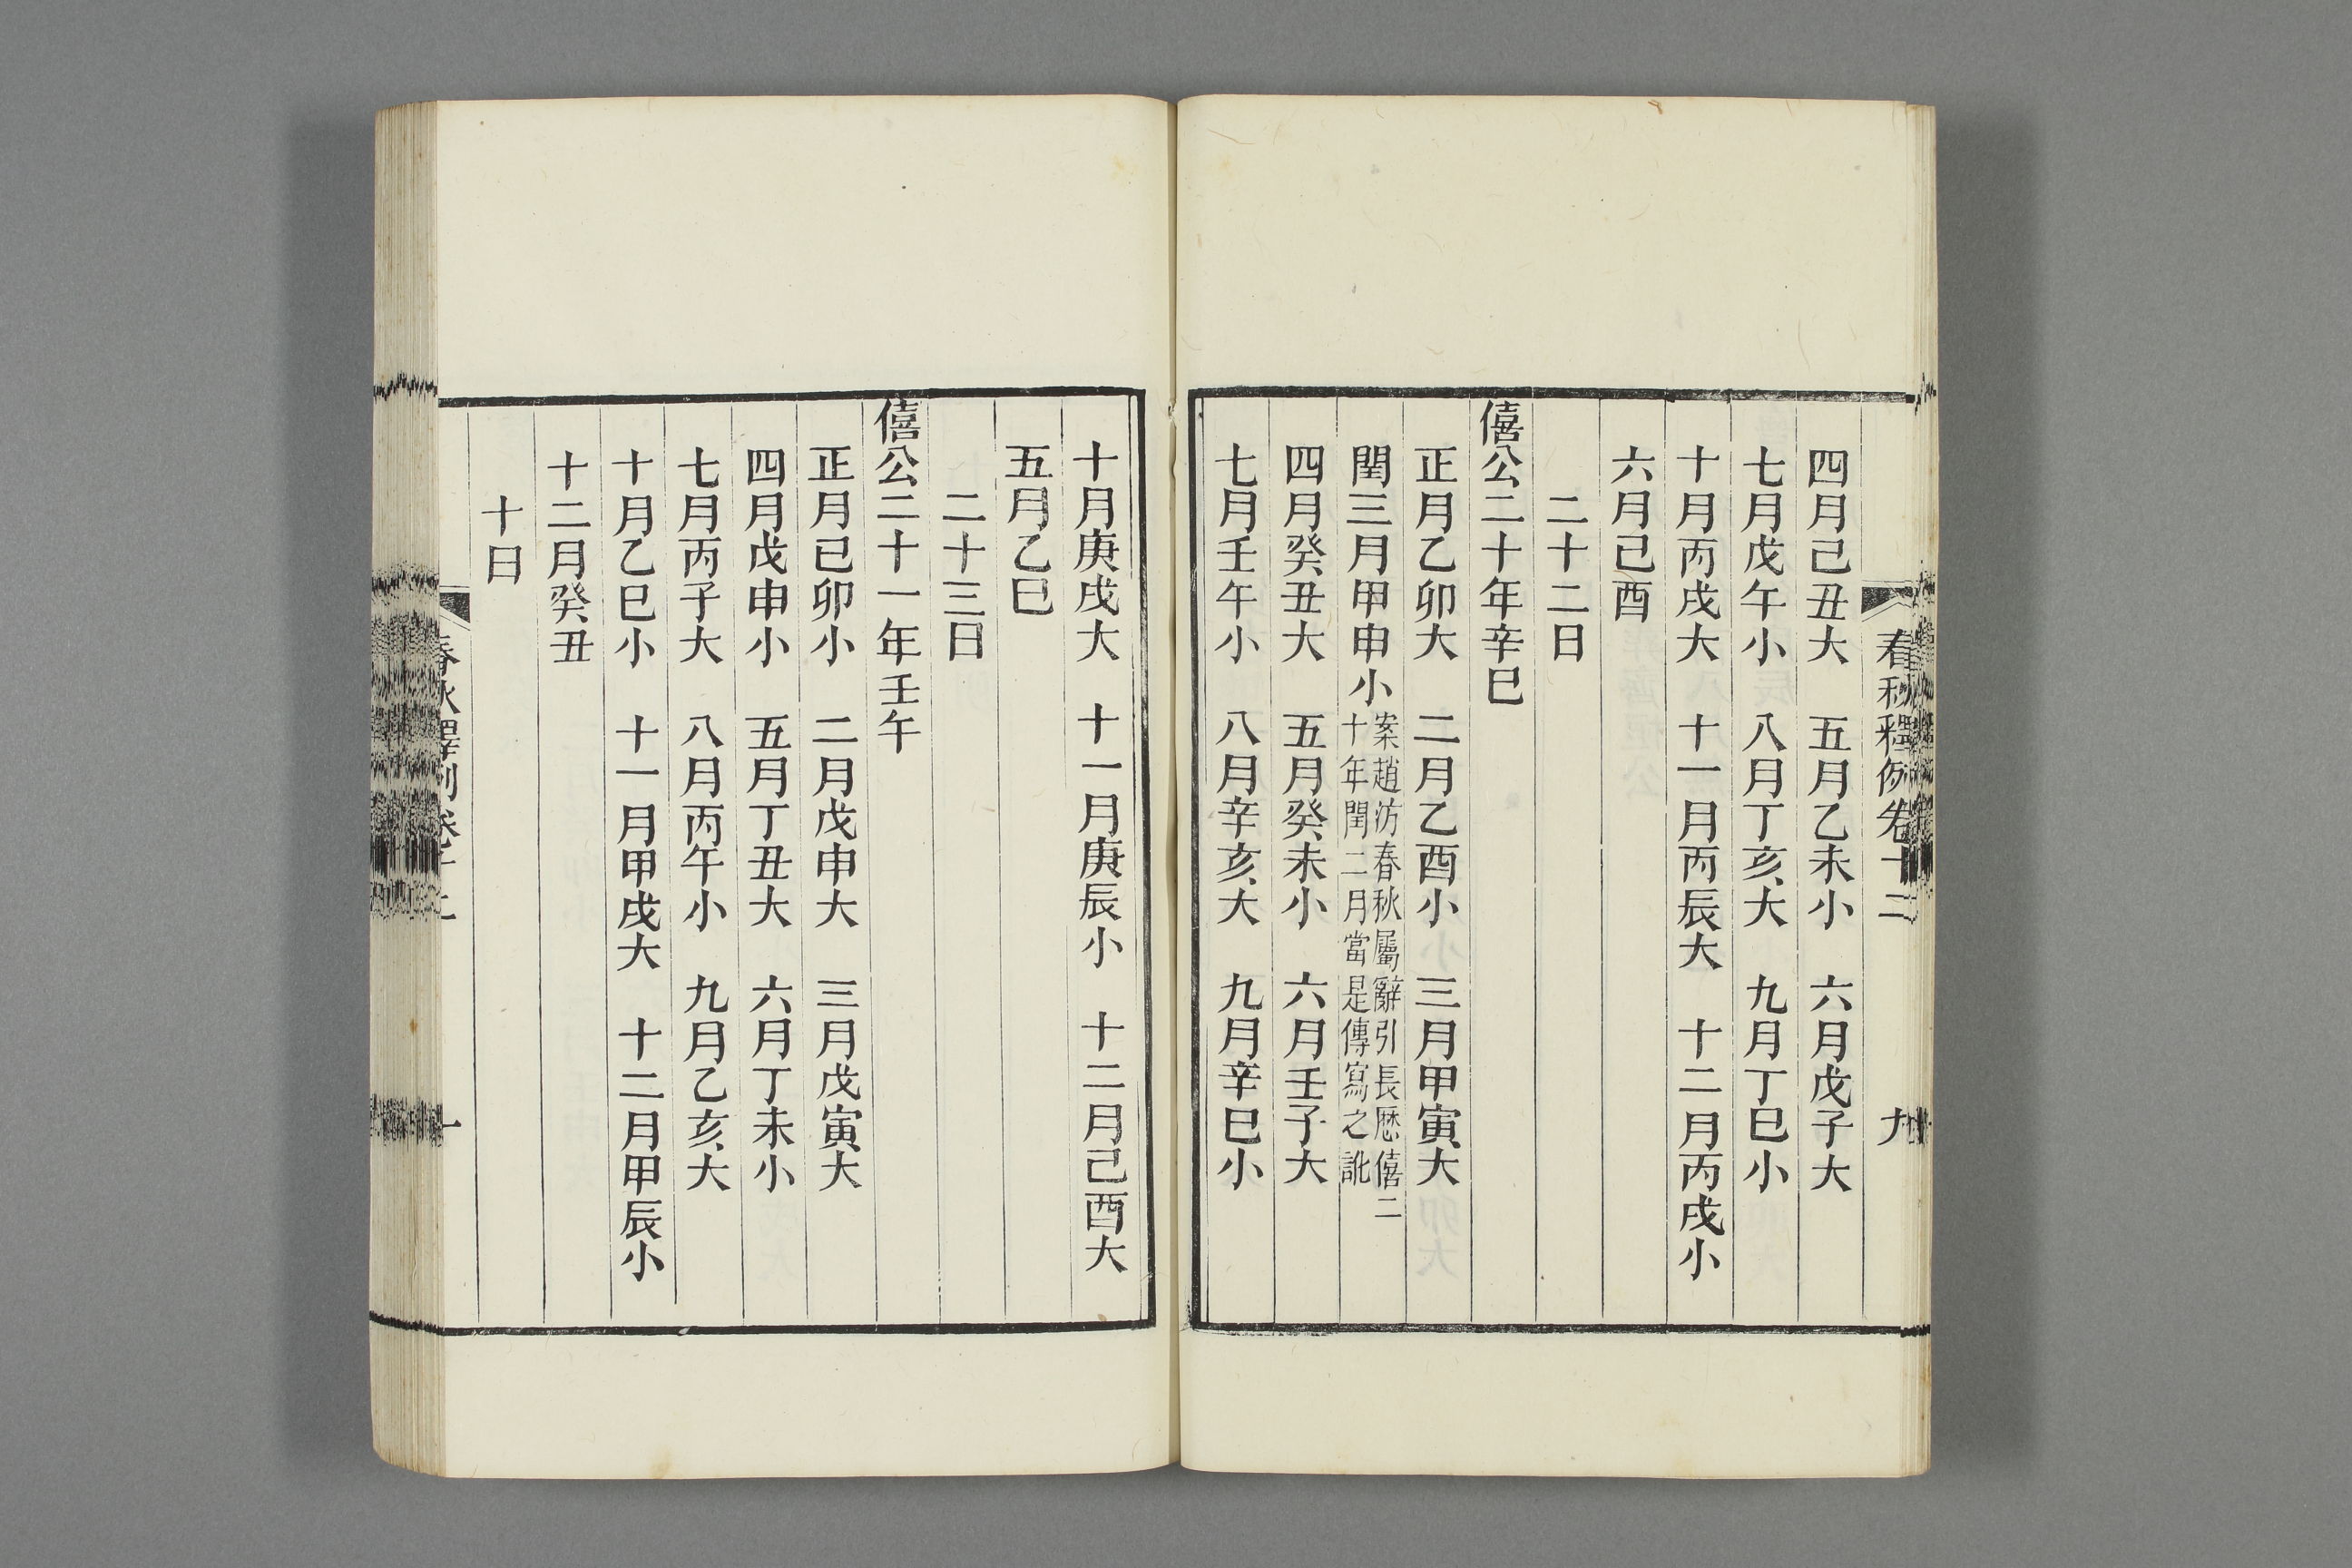 春秋釋例卷十二 九
四月己丑大 五月乙未小 六月戊子大
七月戊午小 八月丁亥大 九月丁巳小
十月丙戌大 十一月丙辰大 十二月丙戌小
六月己酉
二十二日
僖公二十年辛巳
正月乙卯大 二月乙酉小 三月甲寅大
閏三月甲申小案趙汸春秋屬辭引長厯僖二
十年閏二月當是傳寫之訛
四月癸丑大 五月癸未小 六月壬子大
七月壬午小 八月辛亥大 九月辛巳小
十月庚戌大 十一月庚辰小 十二月己酉大
五月乙巳
二十三日
僖公二十一年壬午
正月己卯小 二月戊申大 三月戊寅大
四月戊申小 五月丁丑大 六月丁未小
七月丙子大 八月丙午小 九月乙亥大
十月乙巳小 十一月甲戌大 十二月甲辰小
十二月癸丑
十日
春秋釋例卷十二